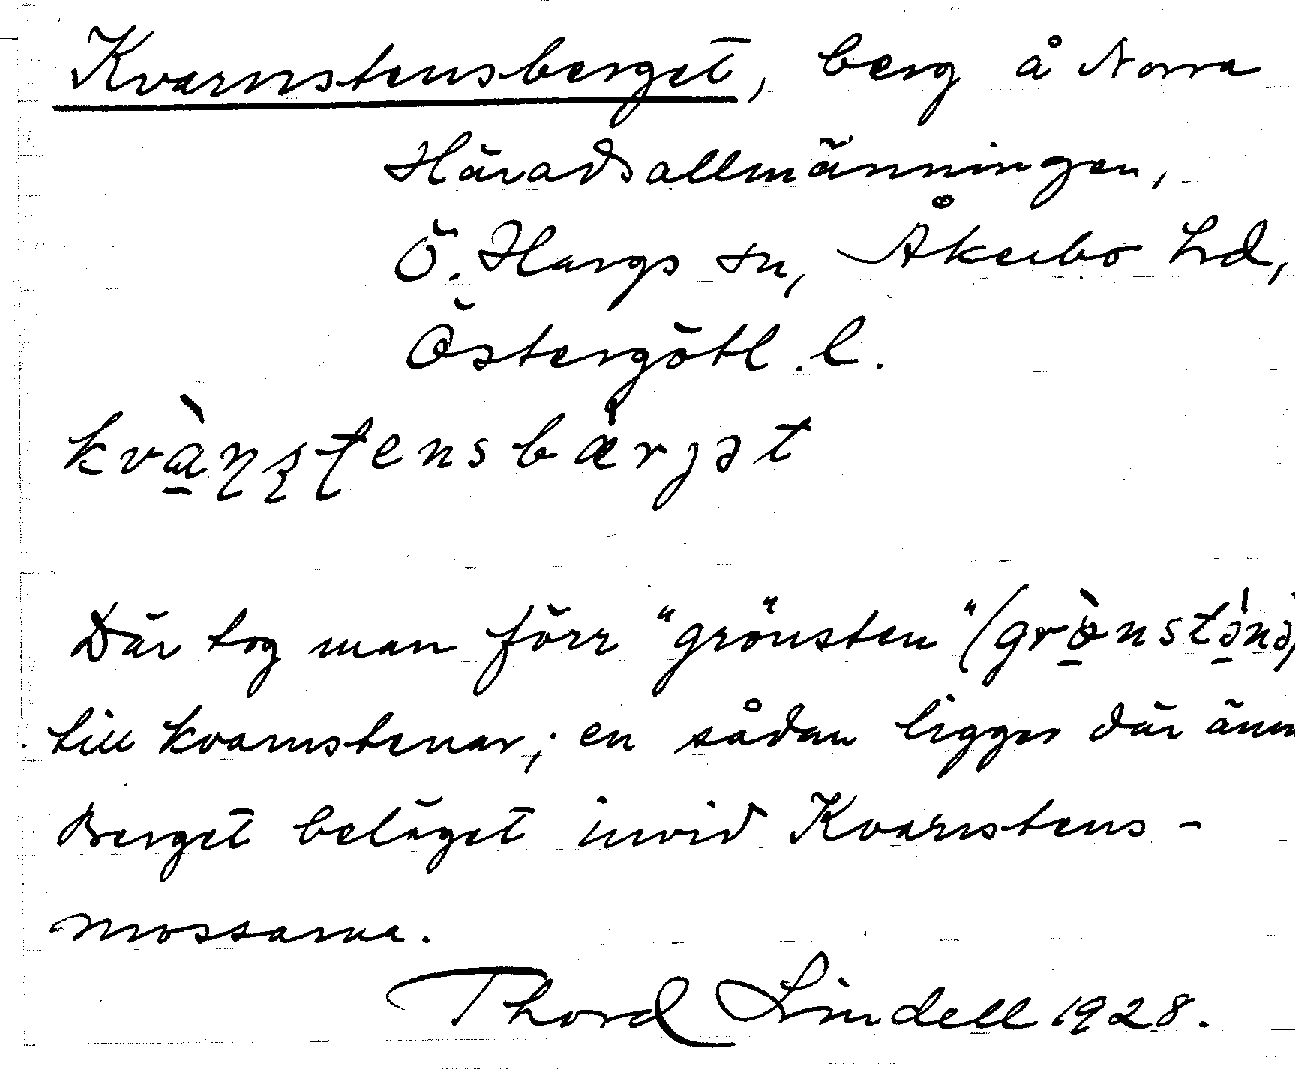 Kvarnstensberget, berg å Norra
Häradsallmänningen,
Ö. Hargs sn, Åkerbo hd,
Östergötl. l.
kvàṇṣṭensbærjət
Där tog man förr "grönsten" (
till kvarnstenar; en sådan ligger där änn
Berget beläget invid Kvarnstens-
mossarna.
Thord Lindell 1928.